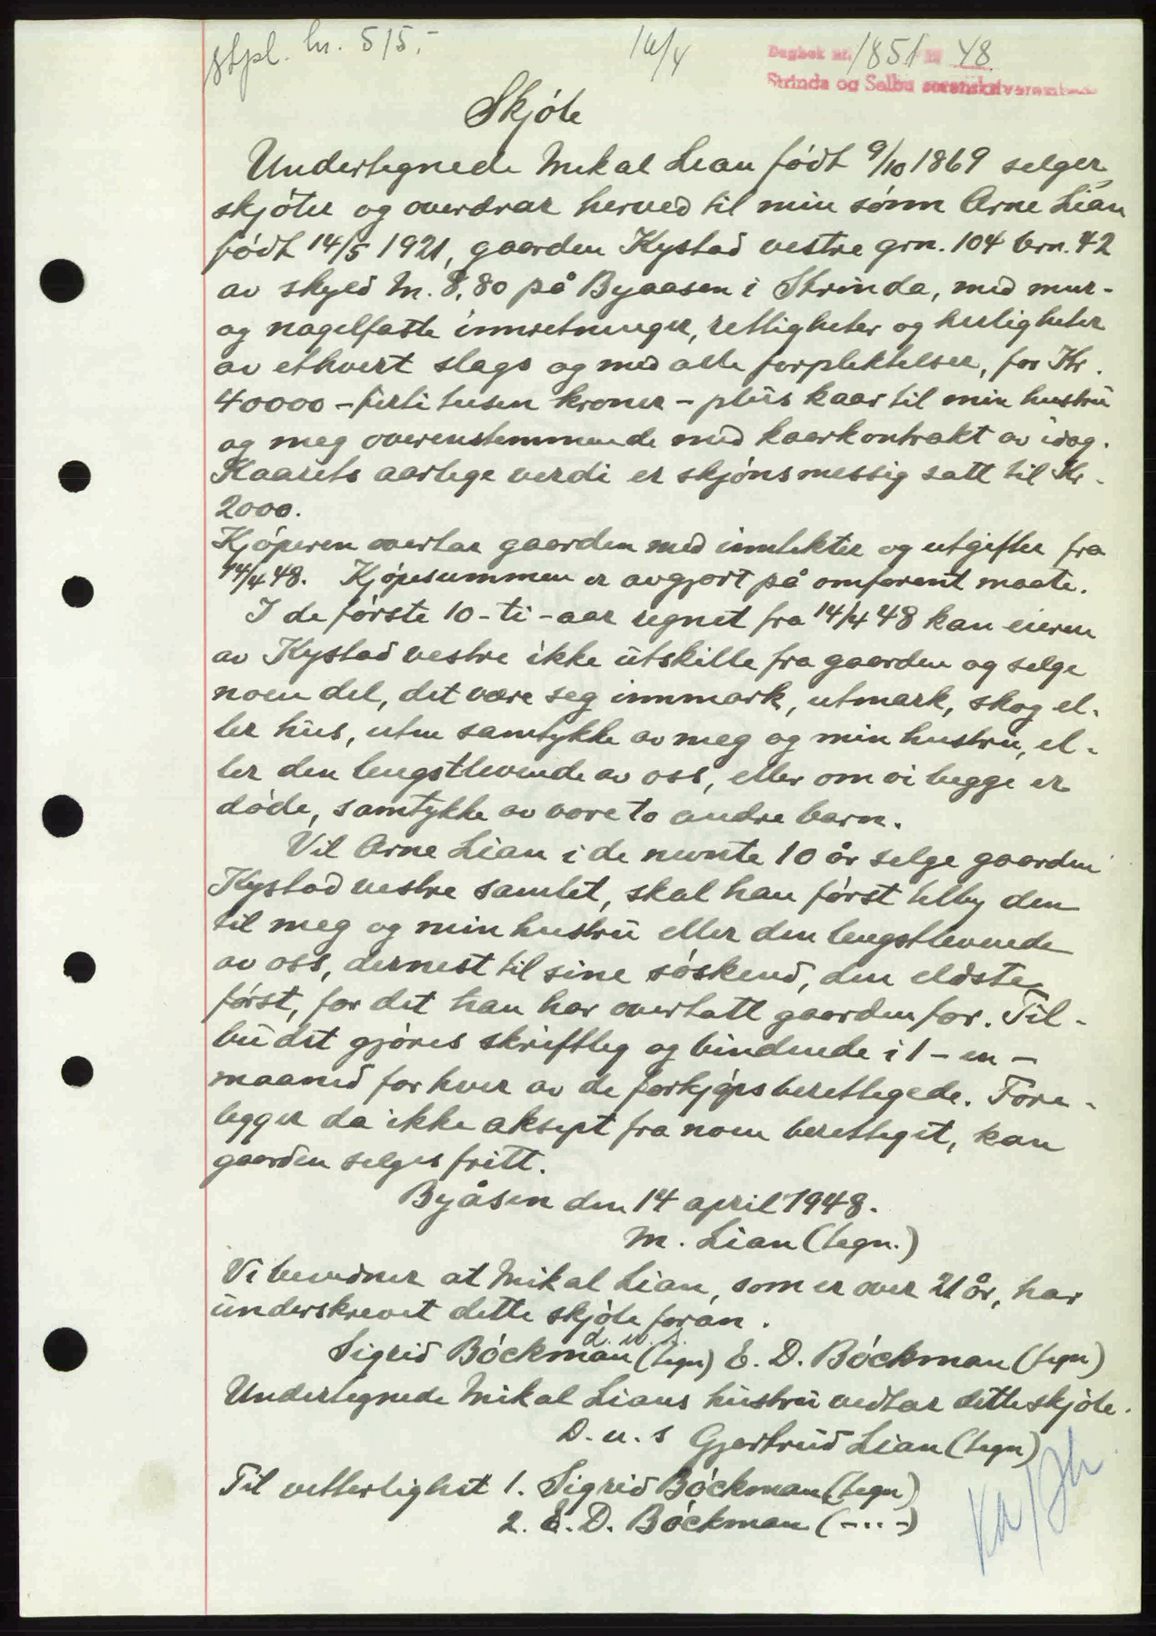 stpl. kr. 515,-
16/4
Dagbok nr. 1851 19 48
Strinda og Selbu sorenskriverembede
Skjöte
Undertegnede Mikal Lian födt 9/10 1869 selger,
skjöter og overdrar herved til min sönn Arne Lian
födt 14/5 1921, gaarden Kystad vestre grn. 104 brn. 42
av skyld M. 8,80 på Byaasen i Strinda, med mur-
og nagelfaste innretninger, rettigheter og herligheter
av ethvert slags og med alle forpliktelser, for Kr.
40000 - firti tusen kroner - plus kaar til min hustru
og meg overenstemmende med kaarkontrakt av idag.
Kaarets aarlige verdi er skjönsmessig satt til Kr.
2000.
Kjöperen overtar gaarden med inntekter og utgifter fra
14/4 48. Kjöpesummen er avgjort på omforent maate.
I de förste 10 - ti - aar regnet fra 14/4 48 kan eieren
av Kystad vestre ikke utskille fra gaarden og selge
noen del, det være seg innmark, utmark, skog el-
ler hus, uten samtykke av meg og min hustru, el-
ler den lengstlevende av oss, eller om vi begge er
döde, samtykke av vore to andre barn.
Vil Arne Lian i de nevnte 10 år selge gaarden
Kystad vestre samlet, skal han först tilby den
til meg og min hustru eller den lengstlevende
av oss, dernest til sine söskend, den eldste
först, for det han har overtatt gaarden for. Til-
budet gjöres skriftleg og bindende i 1 - en -
maaned for hver av de forkjöpsberettegede. Fore-
legger da ikke aksept fra noen berettiget, kan
gaarden selges fritt.
Byåsen den 14 april 1948.
M. Lian (tegn.)
Vi bevidner at Mikal Lian, som er over 21 år, har
underskrevet dette skjöte foran.
d. u. s.
Sigrid Böckman (tegn) E. D. Böckman (tegn)
Undertegnede Mikal Lians hustru vedtar dette skjöte.
D. u. s Gjertrud Lian (tegn)
Til vitterlighet 1. Sigrid Böckman (tegn)
2. E. D. Böckman (-..-)